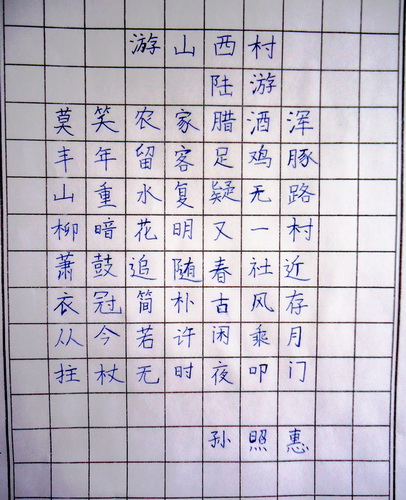 游山西村
陆游
莫笑农家腊酒浑
丰年留客足鸡豚
山重水复疑无路
柳暗花明又一村
萧鼓追随春社近
衣冠简朴古风存
从今若许闲乘月
拄杖无时夜叩门
孙照惠